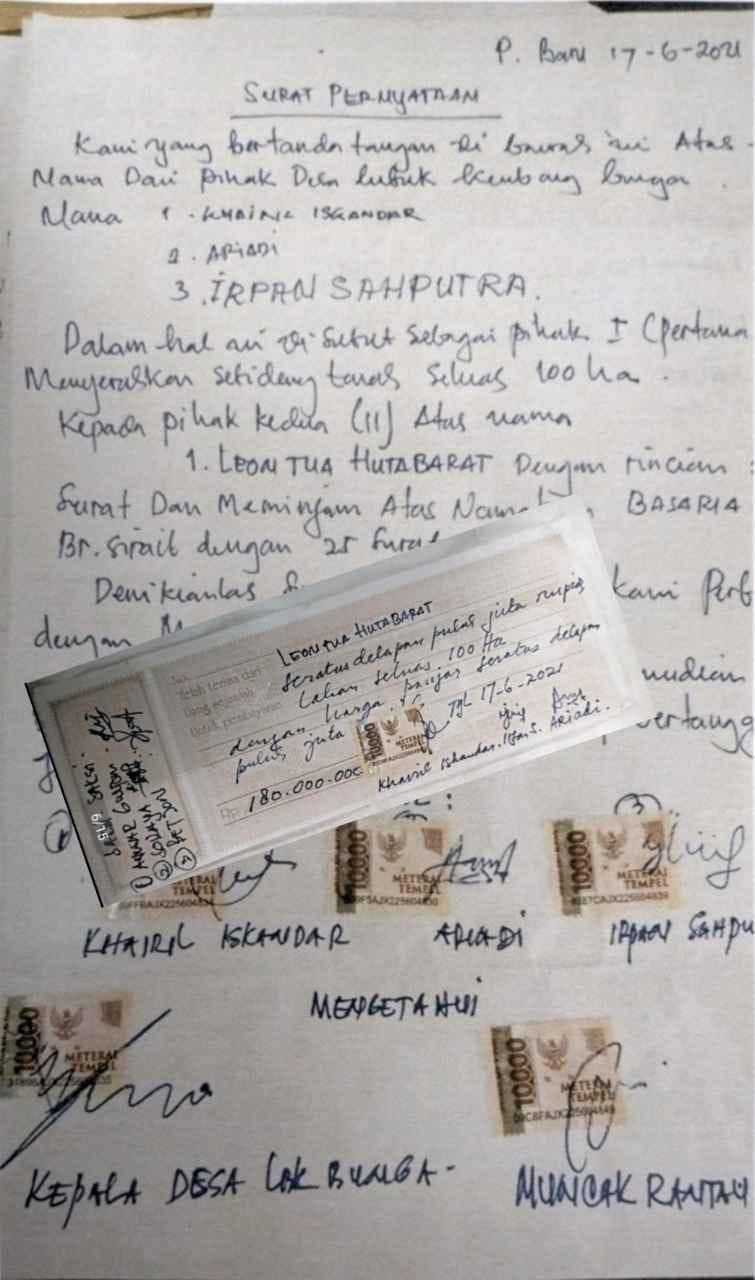 P. Baru 17-6-2021
SURAT PERNYATAAN
Kami yang bertanda tangan di bawah ini Atas
Nama Dari pihak Desa lubuk kembang bunga
Nama 1. KHAIRIL ISKANDAR
2. ARIADI
3. IRPAN SAHPUTRA.
Dalam hal ini di sebut sebagai pihak I (pertama
Menyerahkan sebidang tanah seluas 100 ha.
Kepada pihak kedua (II) Atas nama
1. LEONTUA HUTABARAT Dengan rincian :
Surat Dan Meminjam Atas Nama BASARIA
Br. Sirait dengan 25 Surat
Demikianlah kami Perb
dengan
mudian
bertangg
No.
Telah terima dari LEONTUA HUTABARAT
Uang sejumlah Seratus delapan puluh juta rupiah
Untuk pembayaran Lahan seluas 100 Ha
dengan harga panjar seratus delapan
puluh juta
Tgl 17-6-2021
Rp. 180.000.000
Khairil Iskandar. Irfan S. Ariadi.
SAKSI
6/15
10000
METERAI
TEMPEL
10000
METERAI
TEMPEL
10000
METERAI
TEMPEL
KHAIRIL ISKANDAR ARIADI IRPAN SAHPU
MENGETAHUI
10000
METERAI
TEMPEL
10000
METERAI
TEMPEL
KEPALA DESA LBK BUNGA - MUNCAK RANTAU